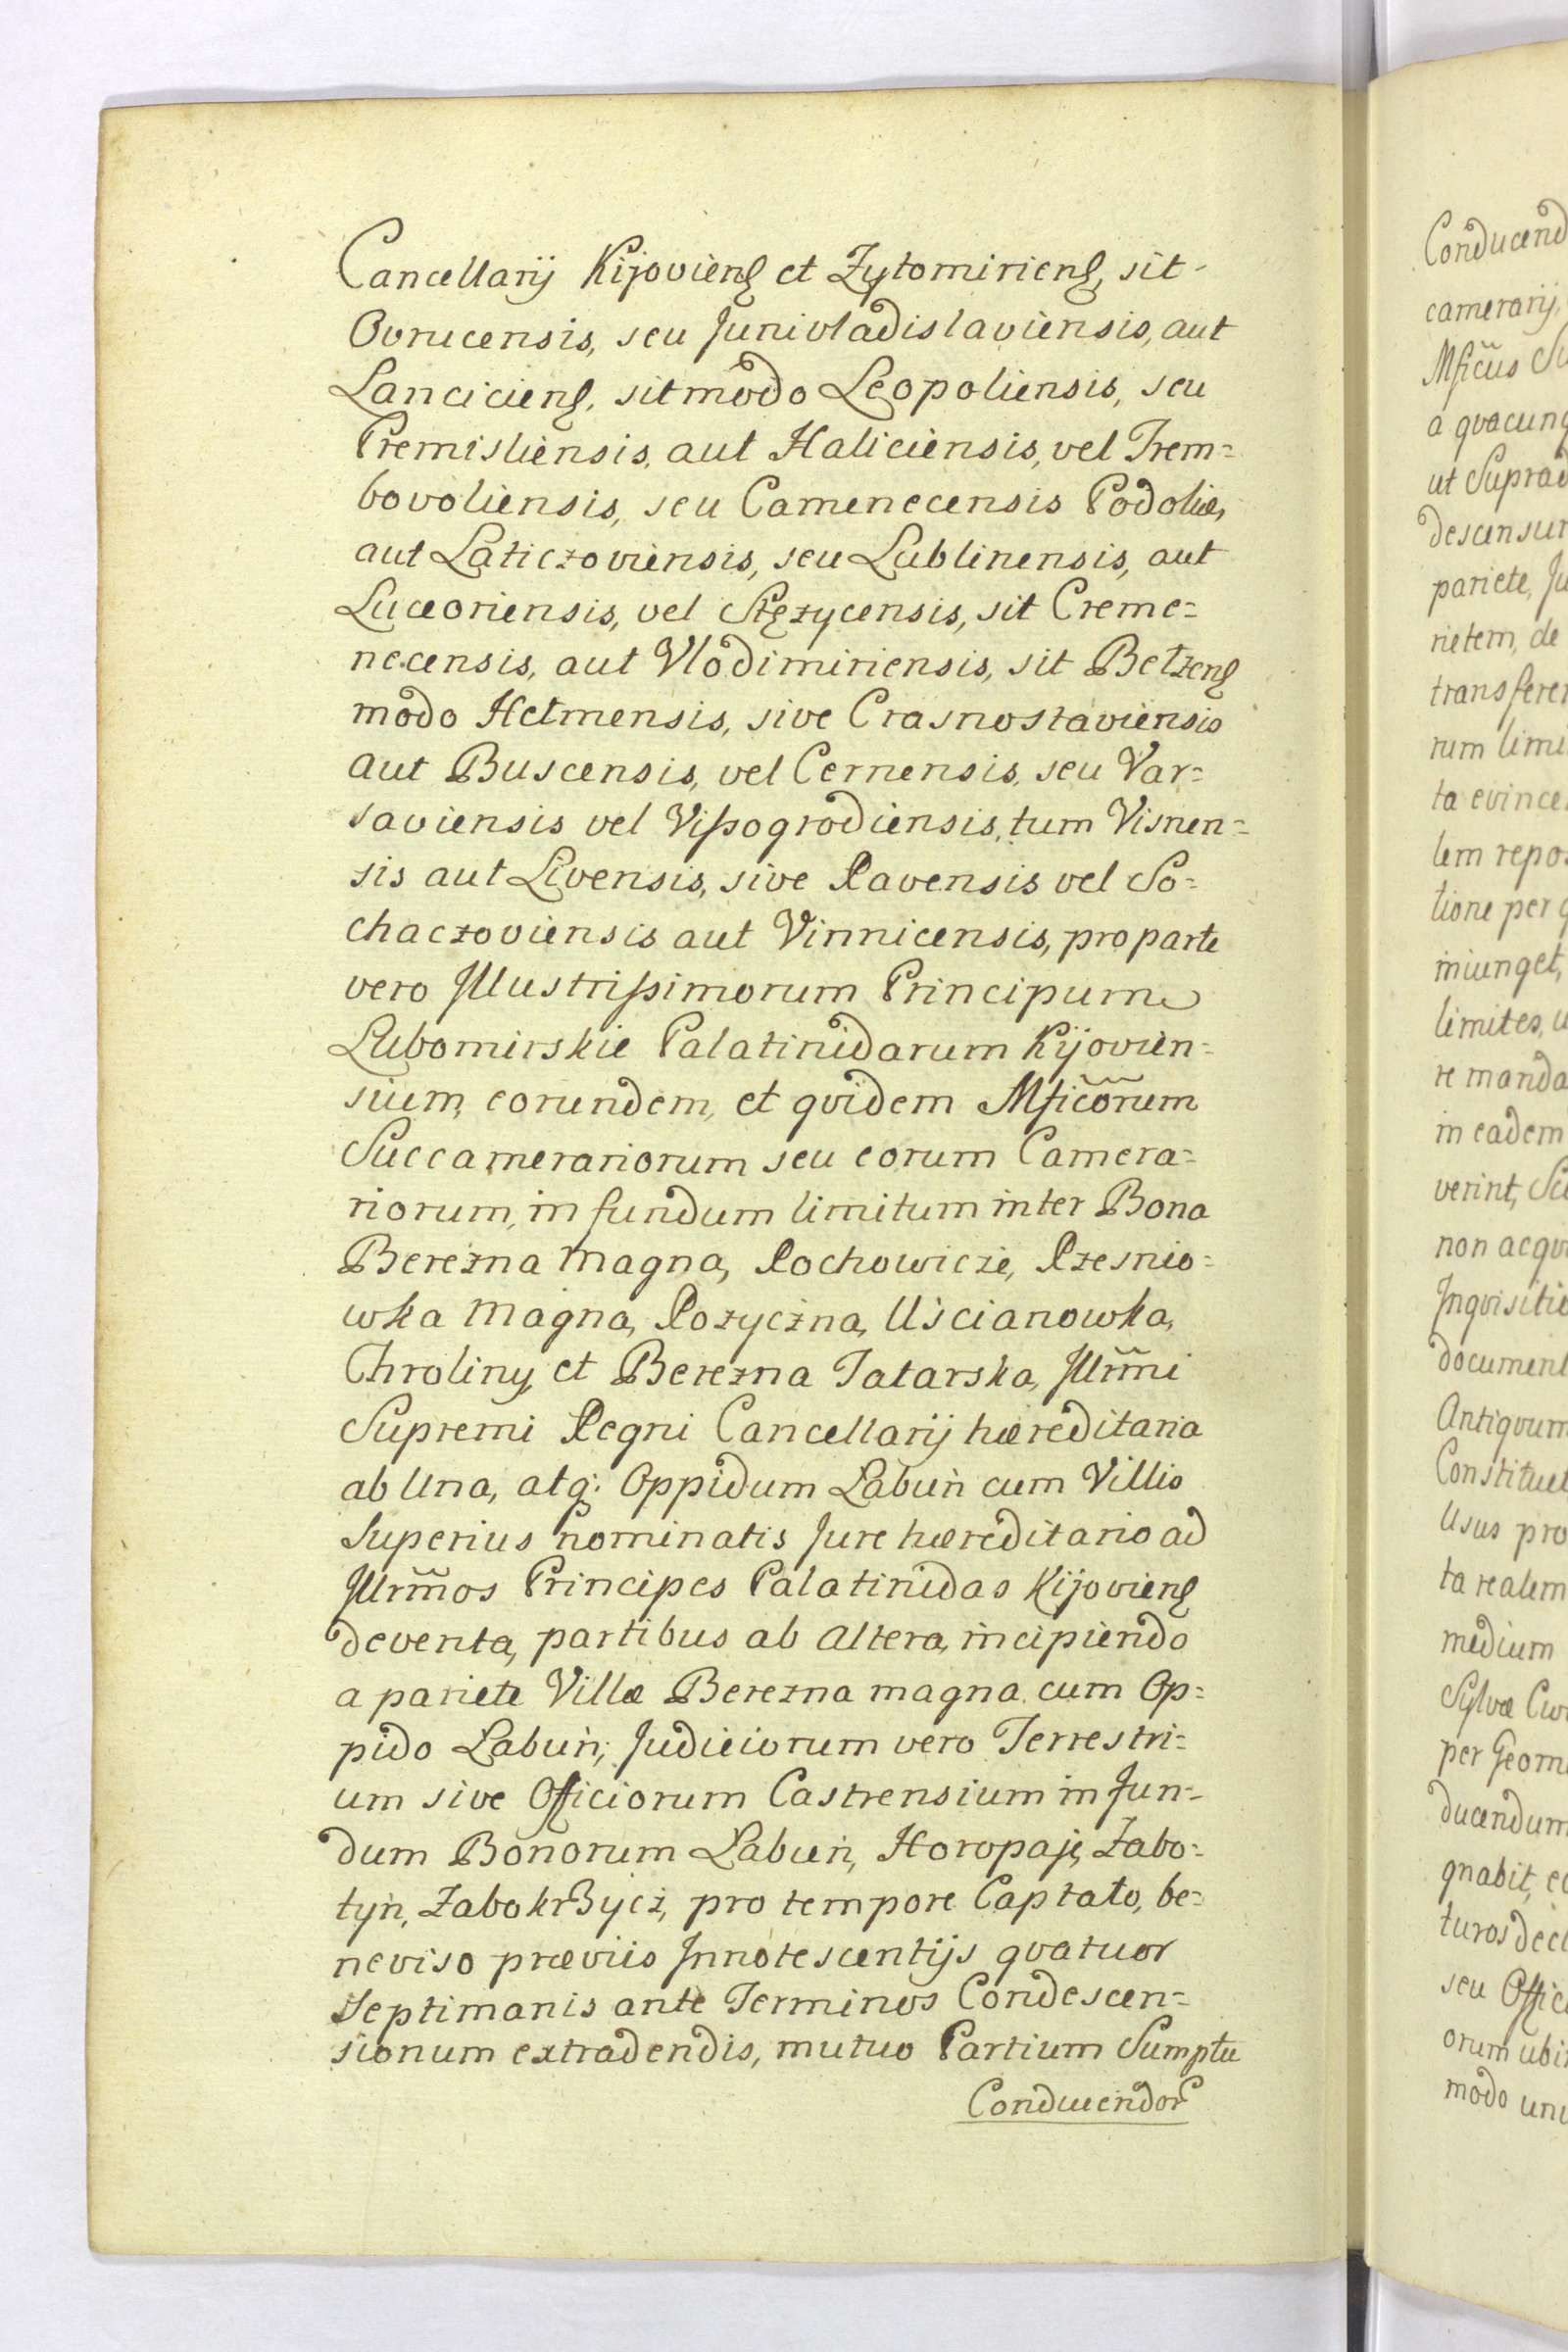 Cancellarij Kijoviens et Zytomiriens, sit
Ovrucensis, seu Junivladislaviensis, aut
Lanciciens, sit modo Leopoliensis, seu
Premisliensis, aut Haliciensis, vel Trem=
bovoliensis, seu Camenecensis Podoliæ,
aut Laticzoviensis, seu Lublinensis, aut
Luceoriensis, vel Stęzycensis, sit Creme=
necensis, aut Vlodimiriensis, sit Bełzens
modo Hełmensis, sive Crasnostaviensis
aut Buscensis, vel Cernensis, seu Var=
saviensis vel Vissogrodiensis, tum Visnen=
sis aut Livensis, sive Ravensis vel So=
chaczoviensis aut Vinnicensis, pro parte
vero Illustrissimorum Principum
Lubomirskie Palatinidarum Kijovien=
sium, eorundem, et qvidem Mficorum
Succamerariorum seu eorum Camera=
riorum, in fundum limitum inter Bona
Berezna Magna, Rochowicze, Rzesnio=
wka Magna, Rozyczna, Uscianowka,
Chroliny, et Berezna Tatarska, Illrmi
Supremi Regni Cancellarij hæreditaria
ab Una, atq: Oppidum Labuń cum Villis
Superius nominatis Jure hæreditario ad
Illrmos Principes Palatinidas Kijoviens
deventa, partibus ab altera, incipiendo
a pariete Villæ Berezna magna cum Op=
pido Labuń; Judiciorum vero Terrestri=
um sive Officiorum Castrensium in Fun=
dum Bonorum Labuń, Horopaje, Zabo=
tyń, ZabokrZycz, pro tempore Captato, be=
neviso præviis Innotescentijs qvatuor
Septimanis ante Terminos Condescen=
sionum extradendis, mutuo Partium Sumptu
Conducendor
Conducend
camerarij,
Mficus Su
a qvacunq
ut Suprad
descensur
pariete, Ju
rietem, de
transferen
rum limi
ta evince
lem repos
tione per q
iniunget,
limites, u
re manda
in eadem
verint, Su
non acqvi
Inqvisitio
document
Antiqvum
Constituet
Usus pro
ta realem
medium
Sylvæ
per Geome
ducendum
gnabit, eo
turos decl
seu Offici
orum ubi
modo uni